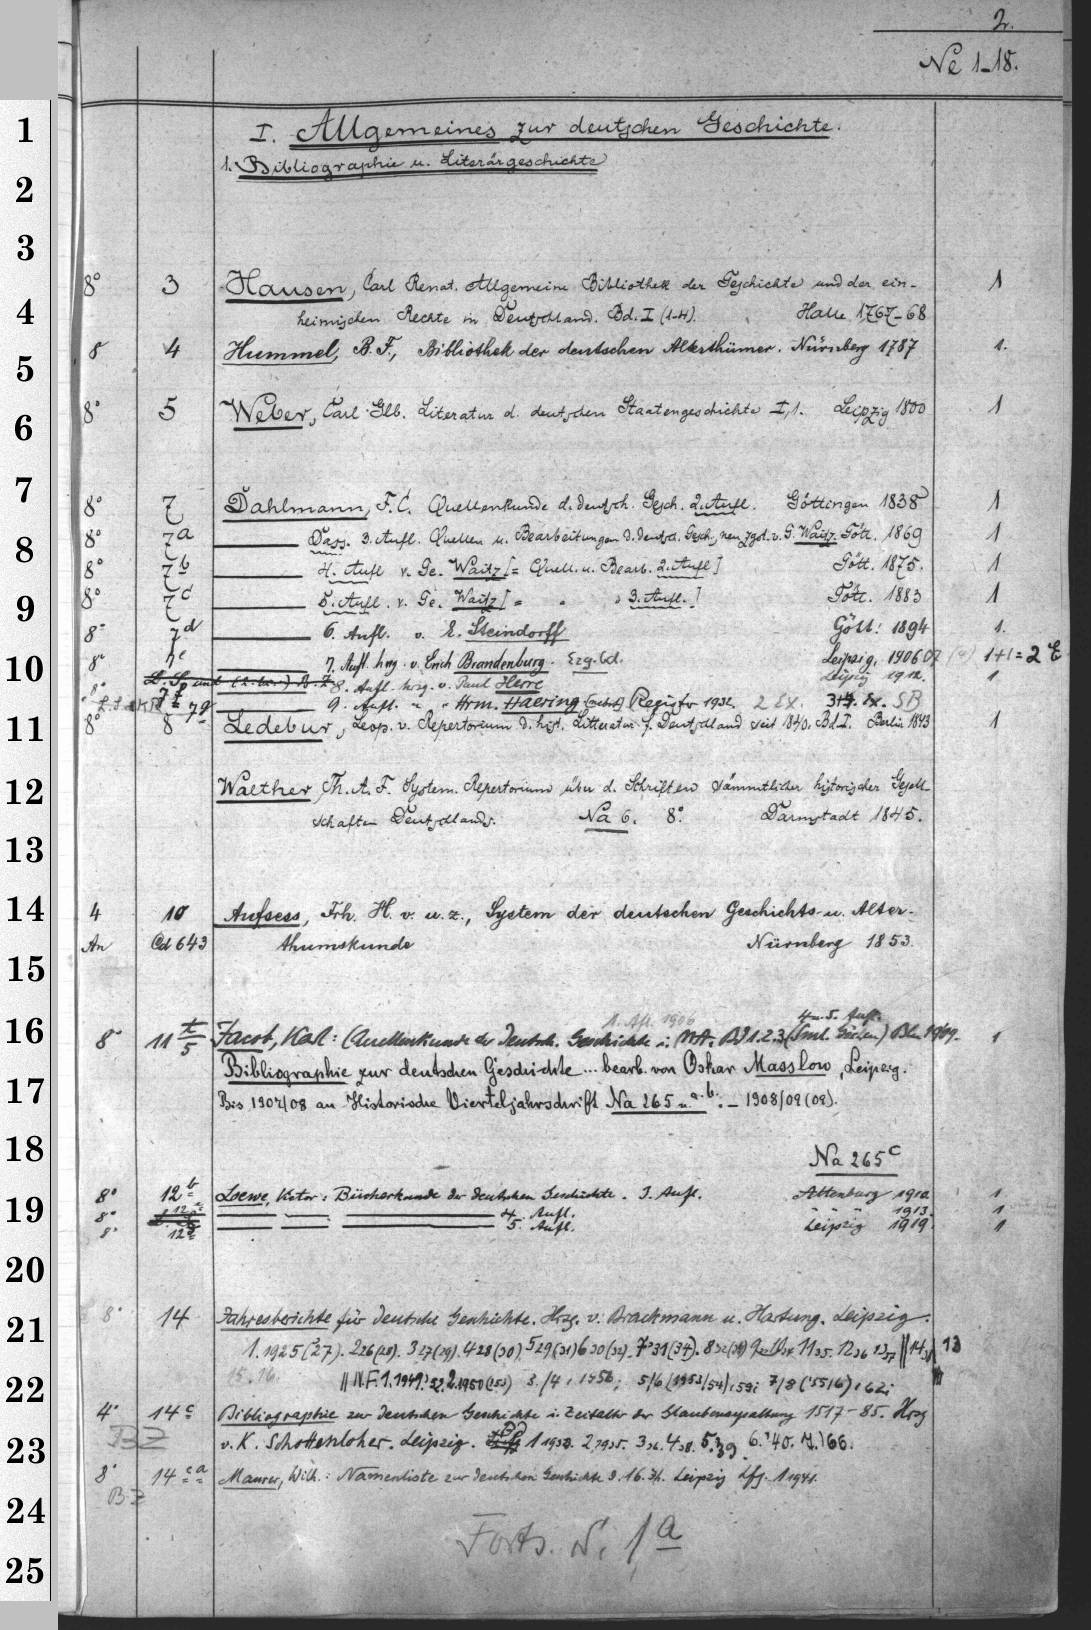 2.
Ne 1-18.
1 I. Allgemeines zur deutschen Geschichte.
1. Bibliographie u. Literärgeschichte
2
3
8° 3 Hausen, Carl Renat. Allgemeine Bibliothek der Geschichte und der ein- 1
4 heimischen Rechte in Deutschland. Bd. I (1-4). Halle 1767-68
8° 4 Hummel, B. F., Bibliothek der deutschen Alterthümer. Nürnberg 1787 1.
5
8° 5 Weber, Carl Glb. Literatur d. deutschen Staatengeschichte I,1. Leipzig 1800 1
6
7
8° 7 Dahlmann, F. C. Quellenkunde d. deutsch. Gesch. 2. Aufl. Göttingen 1838 1
8 8° 7a Dass. 3. Aufl. Quellen u. Bearbeitungen d. deutsch. Gesch., neu zgst. v. G. Waitz. Gött. 1869 1
8° 7b 4. Aufl v. Ge. Waitz [= Quell. u. Bearb. 2. Aufl] Gött. 1875. 1
9 8° 7c 5. Aufl. v. Ge. Waitz [= " " 3. Aufl.] Gött. 1883 1
8° 7d 6. Aufl. v. E. Steindorff Gött. 1894 1.
10 8° 7e 7. Aufl. hrg. v. Erich Brandenburg. Erg. bd. Leipzig, 1906 07 1+1=2 E
8° 7f 8. Aufl. hrsg. v. Paul Herre Leipzig 1912. 1
7g 9. Aufl. " " Hrm. Haering Register 1932. 2 Ex. Ex. SB
11 8° 8 Ledebur, Leop. v. Repertorium d. hist. Litteratur f. Deutschland seit 1840. Bd. I. Berlin 1843 1
12 Walther, Th. A. F. System. Repertorium über d. Schriften sämmtlicher historischer Gesell-
schaften Deutschlands. Na 6. 8° Darmstadt 1845.
13
14 4 10 Aufsess, Frh. H. v. u. z., System der deutschen Geschichts- u. Alter-
An Cd 643 thumskunde Nürnberg 1853.
15
1. Afl. 1906 4u.5. Aufl.
16 8° 11 t/5 Jacob, Karl: Quellenkunde der deutsch. Geschichte i. MA. Bd 1.2.3 (Sml. Göschen) Bln. 1909. 1
Bibliographie zur deutschen Geschichte ... bearb. von Oskar Masslow, Leipzig.
17 Bis 1907/08 an Historische Vierteljahrschrift Na 265 u. a. b. - 1908/09 (09).
18 Na 265c
8° 12b Loewe, Victor: Bücherkunde der deutschen Geschichte. 3. Aufl. Altenburg 1910 1
19 8° 12c 4. Aufl. " " 1913. 1
8° 12d 5. Aufl. Leipzig 1919. 1
20
21 8° 14 Jahresberichte für deutsche Geschichte. Hrsg. v. Brackmann u. Hartung. Leipzig.
1. 1925(27). 2 26(28). 3 27(29). 4 28(30). 5 29(31) 6 30(32). 7 31(34). 8 32 11 35. 12 36 13 37 || 14 38 13
22 15. 16. || N.F. 1. 1949. 52. 2. 1950 (53) 3./4, 1956; 5/6 (1953/54), 59; 7/8 (55 16), 62;
4° 14c Bibliographie zur deutschen Geschichte i. Zeitalter der Glaubensspaltung 1517-85. Hrsg
23 BZ v. K. Schottenloher. Leipzig. 1 1933. 2, 1935. 3 36. 4 38. 5. 39. 6. '40. 7.) 66.
8° 14ca Maurer, Wilh.: Namenliste zur deutschen Geschichte d. 16. Jh. Leipzig Lfg. 1 1941.
BZ
24 Forts. S. 1a
25